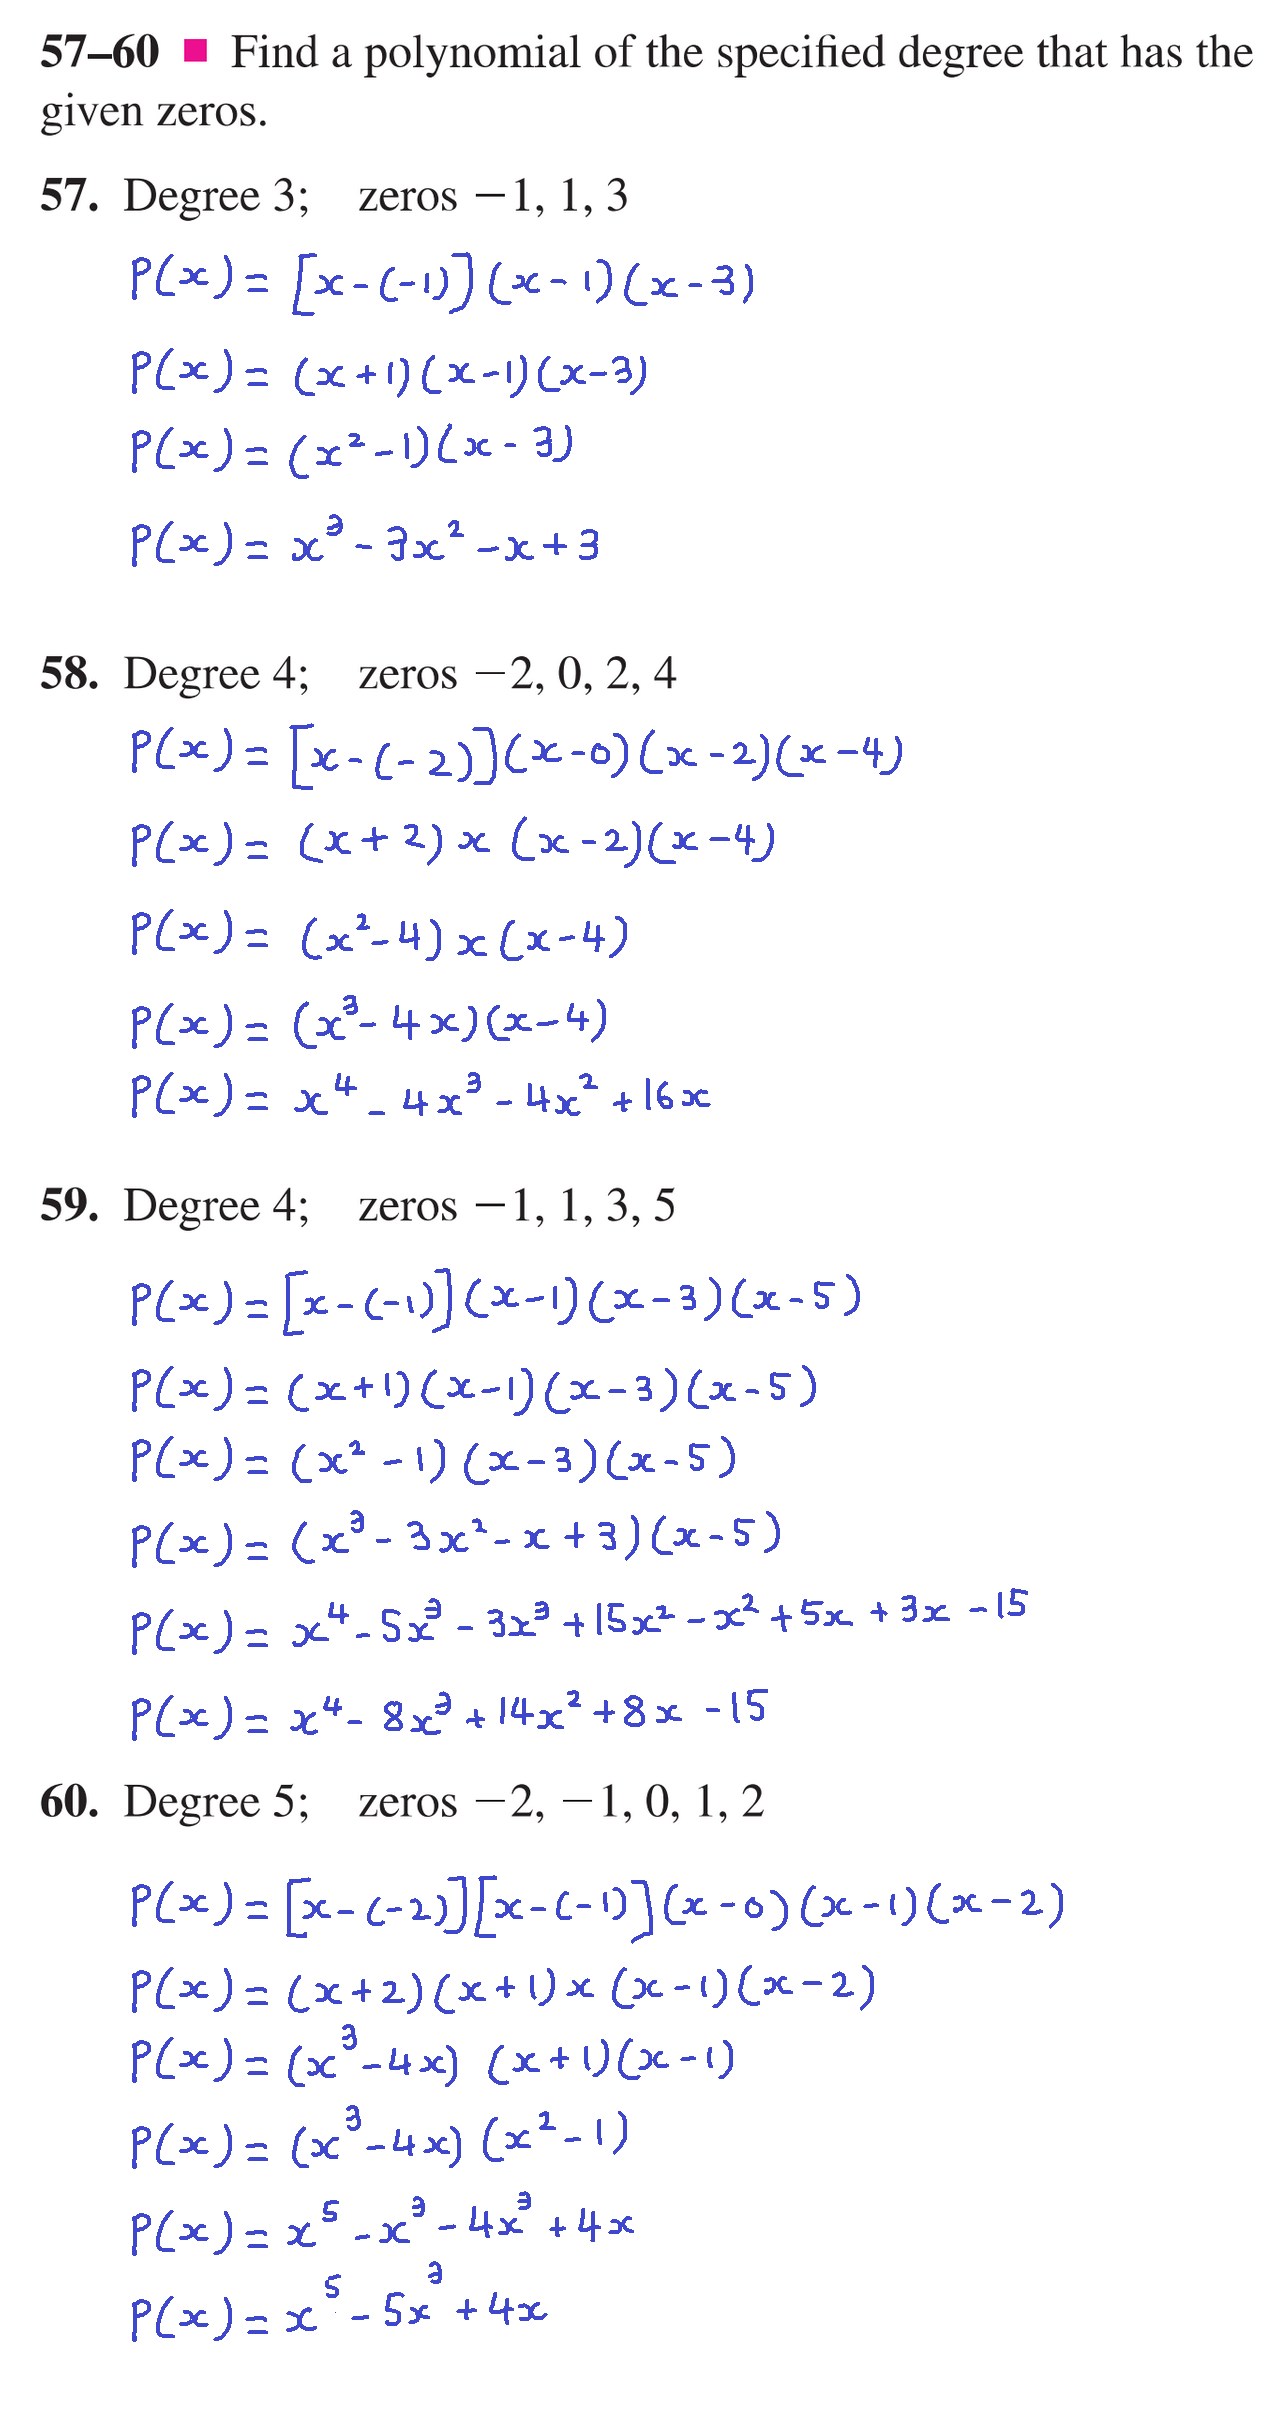 57–60 ■ Find a polynomial of the specified degree that has the
given zeros.
57. Degree 3; zeros −1, 1, 3
P(x) = [x-(-1)](x-1)(x-3)
P(x) = (x+1)(x-1)(x-3)
P(x) = (x²-1)(x-3)
P(x) = x³ - 3x² - x + 3
58. Degree 4; zeros −2, 0, 2, 4
P(x) = [x-(-2)](x-0)(x-2)(x-4)
P(x) = (x+2) x (x-2)(x-4)
P(x) = (x²-4) x (x-4)
P(x) = (x³-4x)(x-4)
P(x) = x⁴ - 4x³ - 4x² + 16x
59. Degree 4; zeros −1, 1, 3, 5
P(x) = [x-(-1)](x-1)(x-3)(x-5)
P(x) = (x+1)(x-1)(x-3)(x-5)
P(x) = (x²-1)(x-3)(x-5)
P(x) = (x³-3x²-x+3)(x-5)
P(x) = x⁴-5x³-3x³+15x²-x²+5x+3x-15
P(x) = x⁴-8x³+14x²+8x-15
60. Degree 5; zeros −2, −1, 0, 1, 2
P(x) = [x-(-2)][x-(-1)](x-0)(x-1)(x-2)
P(x) = (x+2)(x+1) x (x-1)(x-2)
P(x) = (x³-4x) (x+1)(x-1)
P(x) = (x³-4x) (x²-1)
P(x) = x⁵-x³-4x³+4x
P(x) = x⁵-5x³+4x